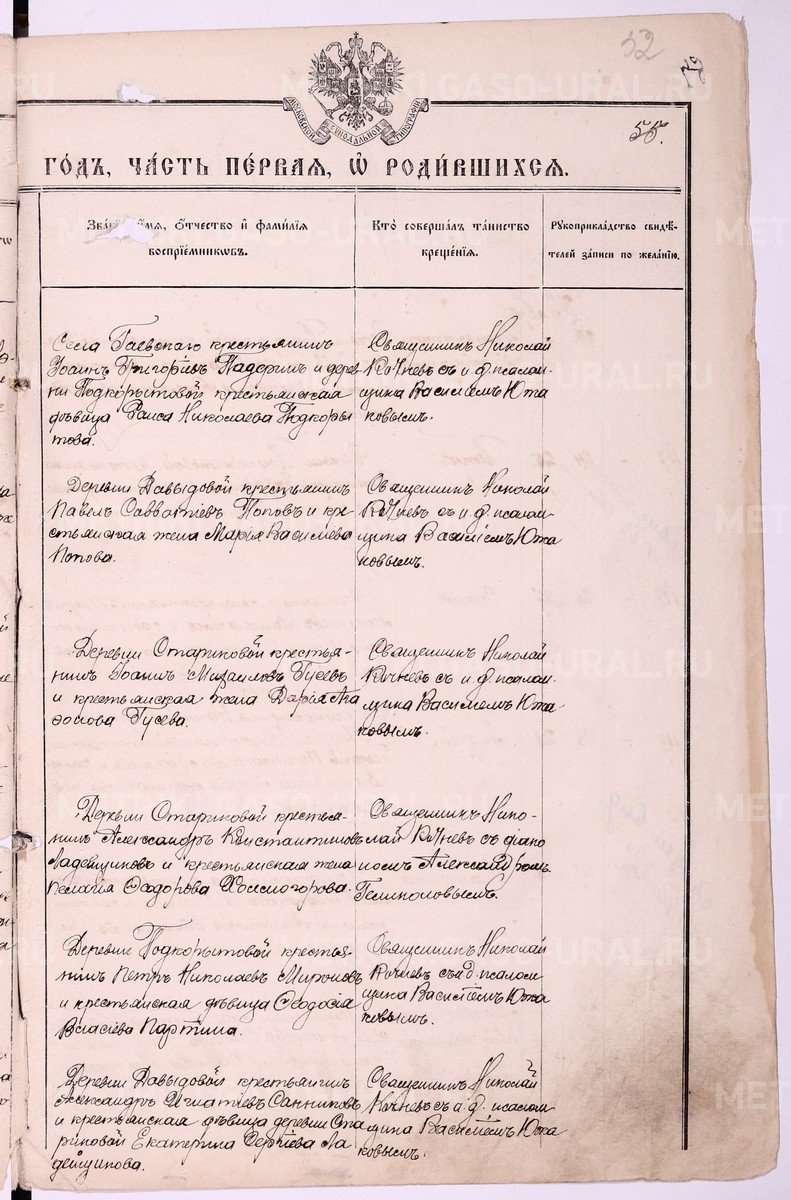 52
55.
МОСКОВСКОЙ СѴНОДАЛЬНОЙ ТИПОГРАФІИ
ГО́ДЪ, ЧА́СТЬ ПЕ́РВАЯ, Ѽ РОДИ́ВШИХСЯ.
ЗВА́НІЕ, И҆́МЯ, Ѻ҆́ТЧЕСТВО И҆ ФАМИ́ЛІЯ
ВОСПРІЕ́МНИКѠВЪ.
КТО̀ СОВЕРША́ЛЪ ТА́ИНСТВО
КРЕЩЕ́НІЯ.
РУКОПРИКЛА́ДСТВО СВИДѢ́-
ТЕЛЕЙ ЗА́ПИСИ ПО ЖЕЛА́НІЮ.
Села Гаевскаго крестьянинъ
Іоаннъ Григорьевъ Падеринъ и дерев
ни Подкорытовой крестьянская
дѣвица Раиса Николаева Подкоры
това.
Священникъ Николай
Кочневъ съ и. д. псалом
щика Василіемъ Южа
ковымъ.
Деревни Давыдовой крестьянинъ
Павелъ Савватіевъ Поповъ и кре
стьянская жена Марья Василіева
Попова.
Священникъ Николай
Кочневъ съ и. д. псалом
щика Василіемъ Южа
ковымъ.
Деревни Стариковой крестья-
нинъ Іоаннъ Михаиловъ Гусевъ
и крестьянская жена Дарья Ага
фонова Гусева.
Священникъ Николай
Кочневъ съ и. д. псалом
щика Василіемъ Южа
ковымъ.
Деревни Стариковой крестья-
нинъ Александръ Константиновъ
Ладейщиковъ и крестьянская жена
Пелагія Ѳеодорова Холмогорова.
Священникъ Нико-
лай Кочневъ съ діако
номъ Александромъ
Деревни Подкорытовой крестья-
нинъ Петръ Николаевъ Мироновъ
и крестьянская дѣвица Ѳеодосія
Власіева Партина.
Священникъ Николай
Кочневъ съ и. д. псалом
щика Василіемъ Южа
ковымъ.
Деревни Давыдовой крестьянинъ
Александръ Игнатіевъ Санниковъ
и крестьянская дѣвица деревни Ста
риковой Екатерина Сергіева Ла
дейщикова.
Священникъ Николай
Кочневъ съ и. д. псалом
щика Василіемъ Южа
ковымъ.